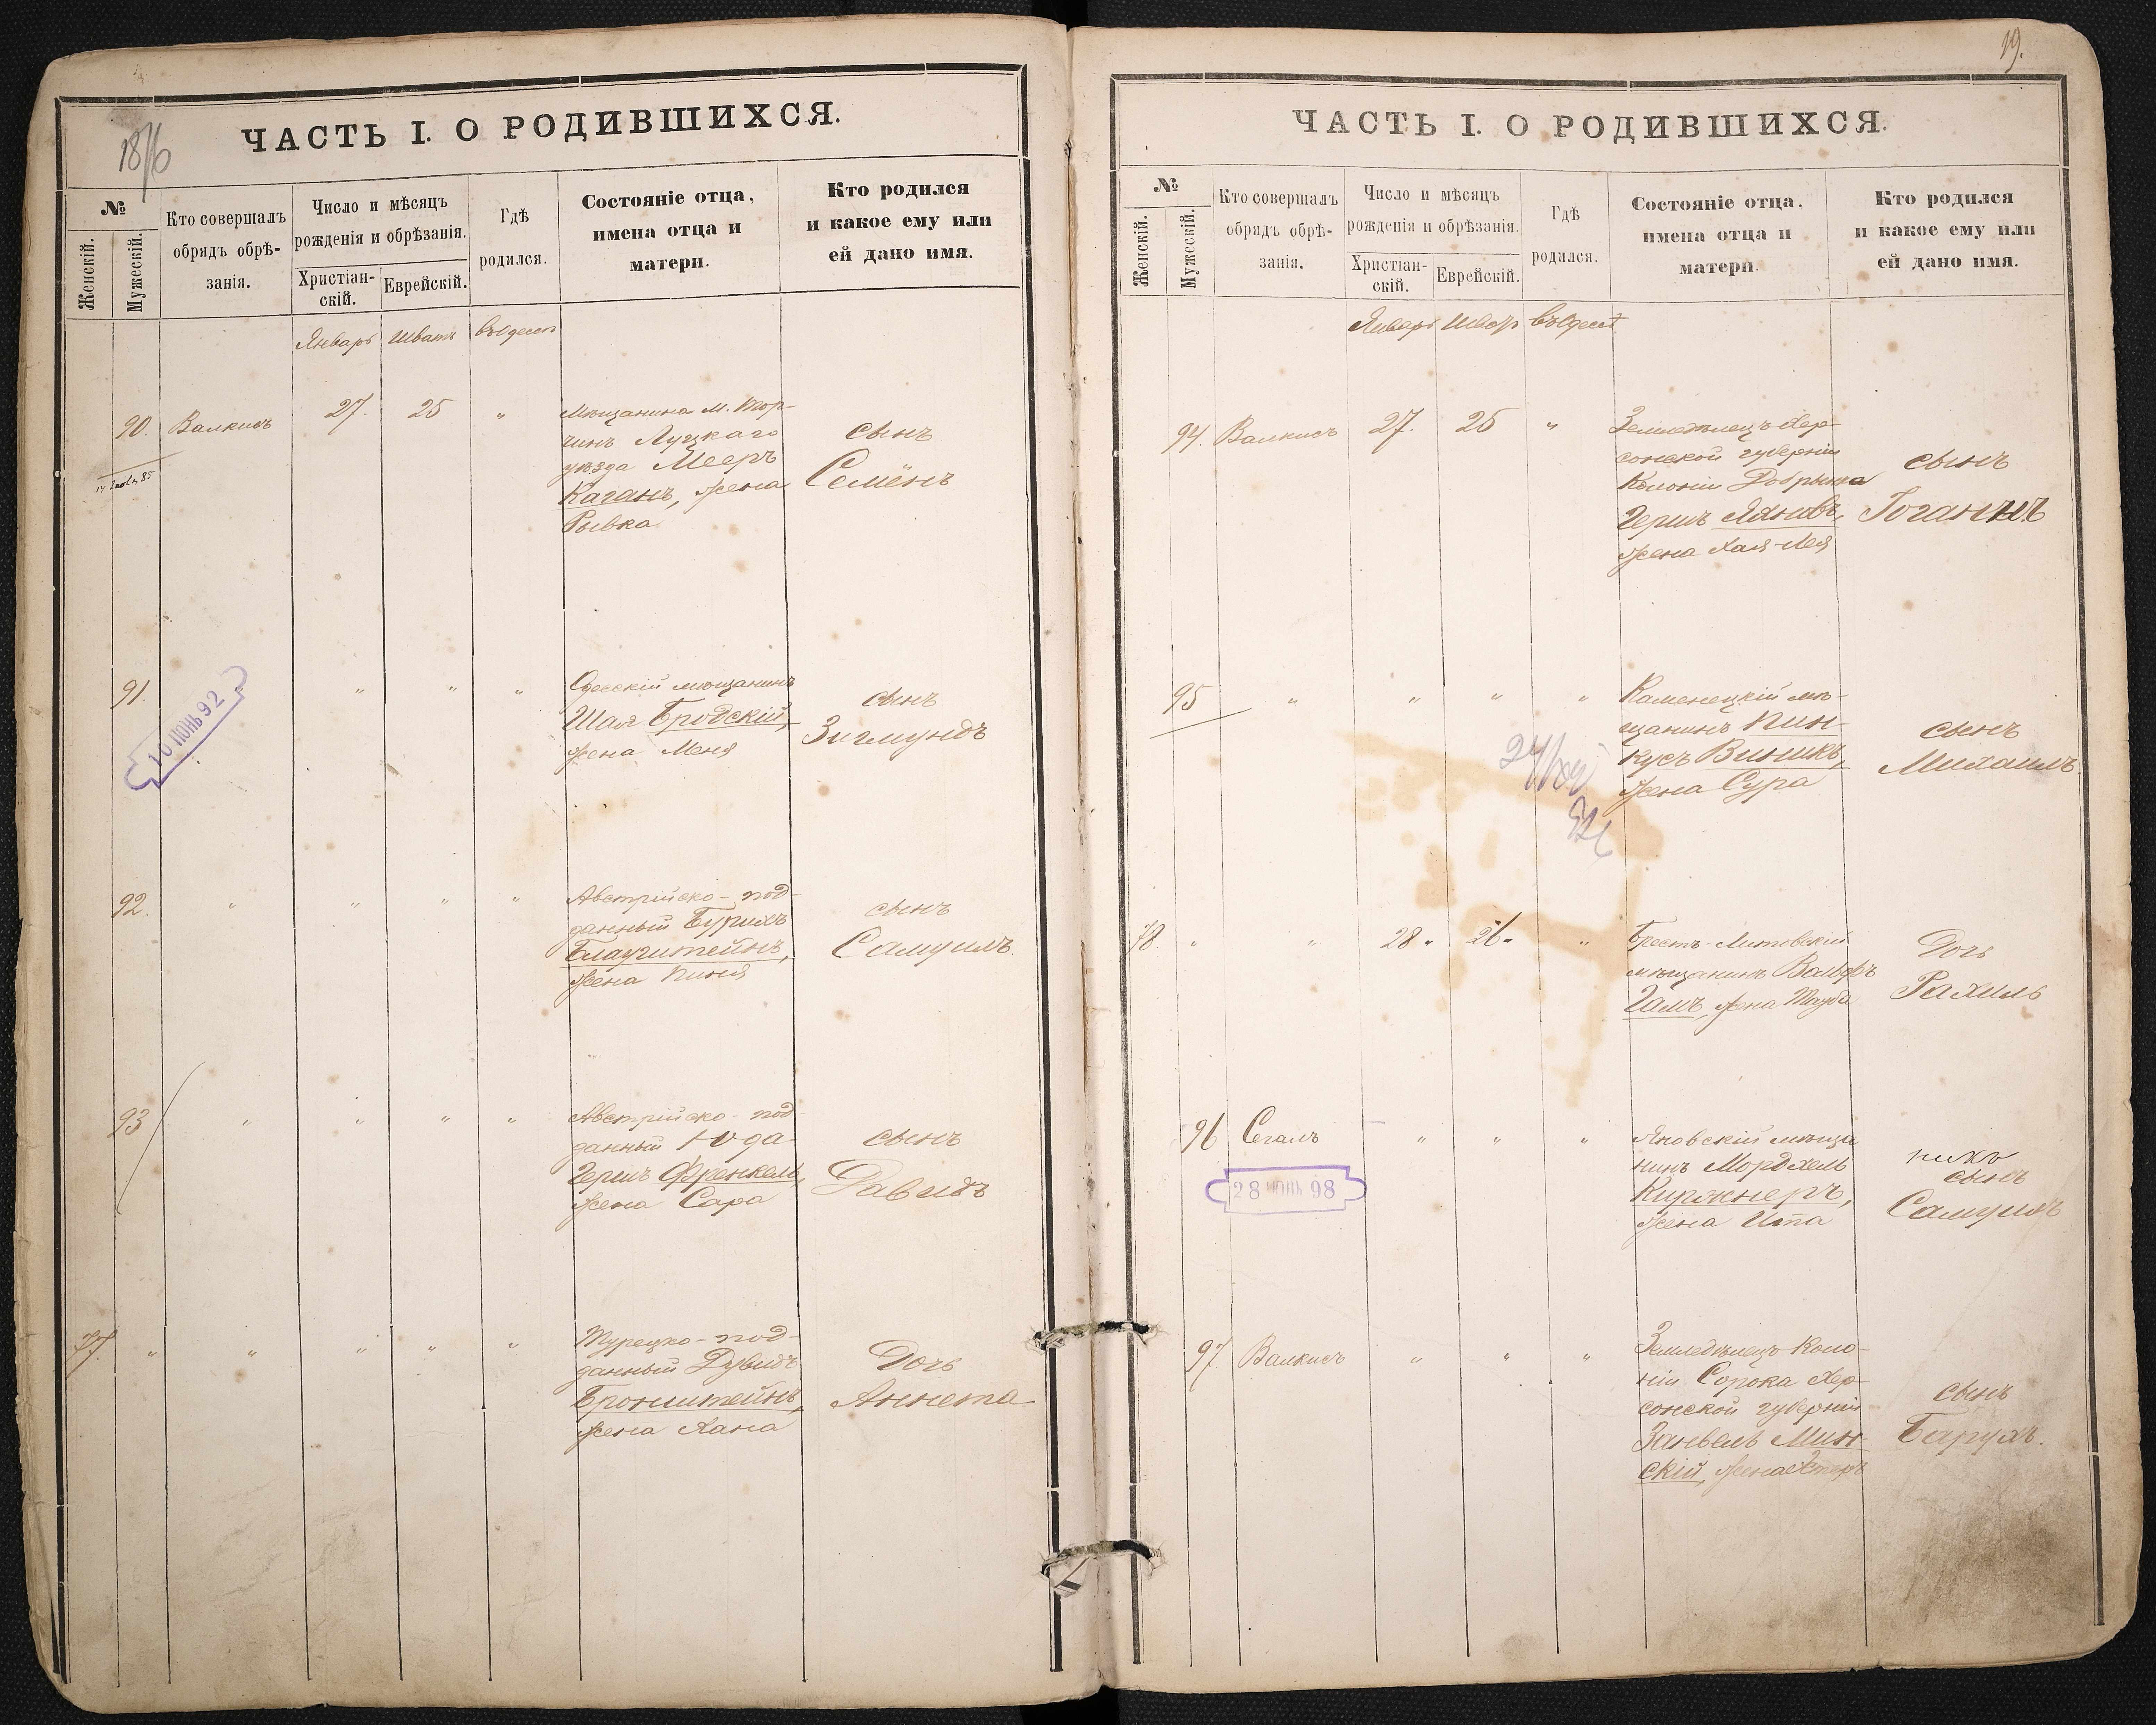 19.
1876
ЧАСТЬ I. О РОДИВШИХСЯ.
№
Женскій.
Мужескій.
Кто совершалъ
обрядъ обрѣ-
занія.
Число и мѣсяцъ
рожденія и обрѣзанія.
Христіан-
скій.
Еврейскій.
Гдѣ
родился.
Состояніе отца,
имена отца и
матери.
Кто родился
и какое ему или
ей дано имя.
Январь Шватъ въ Одессѣ
90. Валкисъ 27. 25 "
Мѣщанина м. Тор-
чинъ Луцкаго
уѣзда Мееръ
Каганъ, жена
Рывка
сынъ
Семёнъ
91. " " "
10 ІЮНЬ 92
Одесскій мѣщанинъ
Шая Бродскій,
жена Меня
сынъ
Зигмундъ
92. " " " "
Австрійско-под-
данный Бурихъ
Блауштейнъ,
жена Пиня
сынъ
Самуилъ.
93 " " " "
Австрійско-под-
данный Юда
Гершъ Френкель,
жена Сара
сынъ
Давидъ
77. " " " " "
Турецко-под-
данный Дувидъ
Бронштейнъ,
жена Хана
Дочь
Аннета
ЧАСТЬ I. О РОДИВШИХСЯ.
№
Женскій.
Мужескій.
Кто совершалъ
обрядъ обрѣ-
занія.
Число и мѣсяцъ
рожденія и обрѣзанія.
Христіан-
скій.
Еврейскій.
Гдѣ
родился.
Состояніе отца,
имена отца и
матери.
Кто родился
и какое ему или
ей дано имя.
Январь Шватъ въ Одессѣ
94. Валкисъ 27. 25 "
Земледѣлецъ Хер-
сонской губерніи
Колоніи Добрыта
Гершъ Яновъ,
жена Хая-Лея
сынъ
Іоганнъ
95 " " " "
Каменецкій мѣ-
щанинъ Пин-
кусъ Виникъ,
жена Сура
сынъ
Михаилъ.
78. " " 28 " 26 " "
Брестъ-Литовскій
мѣщанинъ Вольфъ
Гамъ, жена Тауба
Дочь
Рахиль
96 Сегалъ " " "
28 ІЮНЬ 98
Яновскій мѣща
нинъ Мордхель
Киржнеръ,
жена Ита
сынъ
Самуилъ
97. Валкисъ " " "
Земледѣлецъ Коло-
ніи Сорока Хер-
сонской губерніи
Занвель Мин-
скій, жена Эстеръ
сынъ
Барухъ.